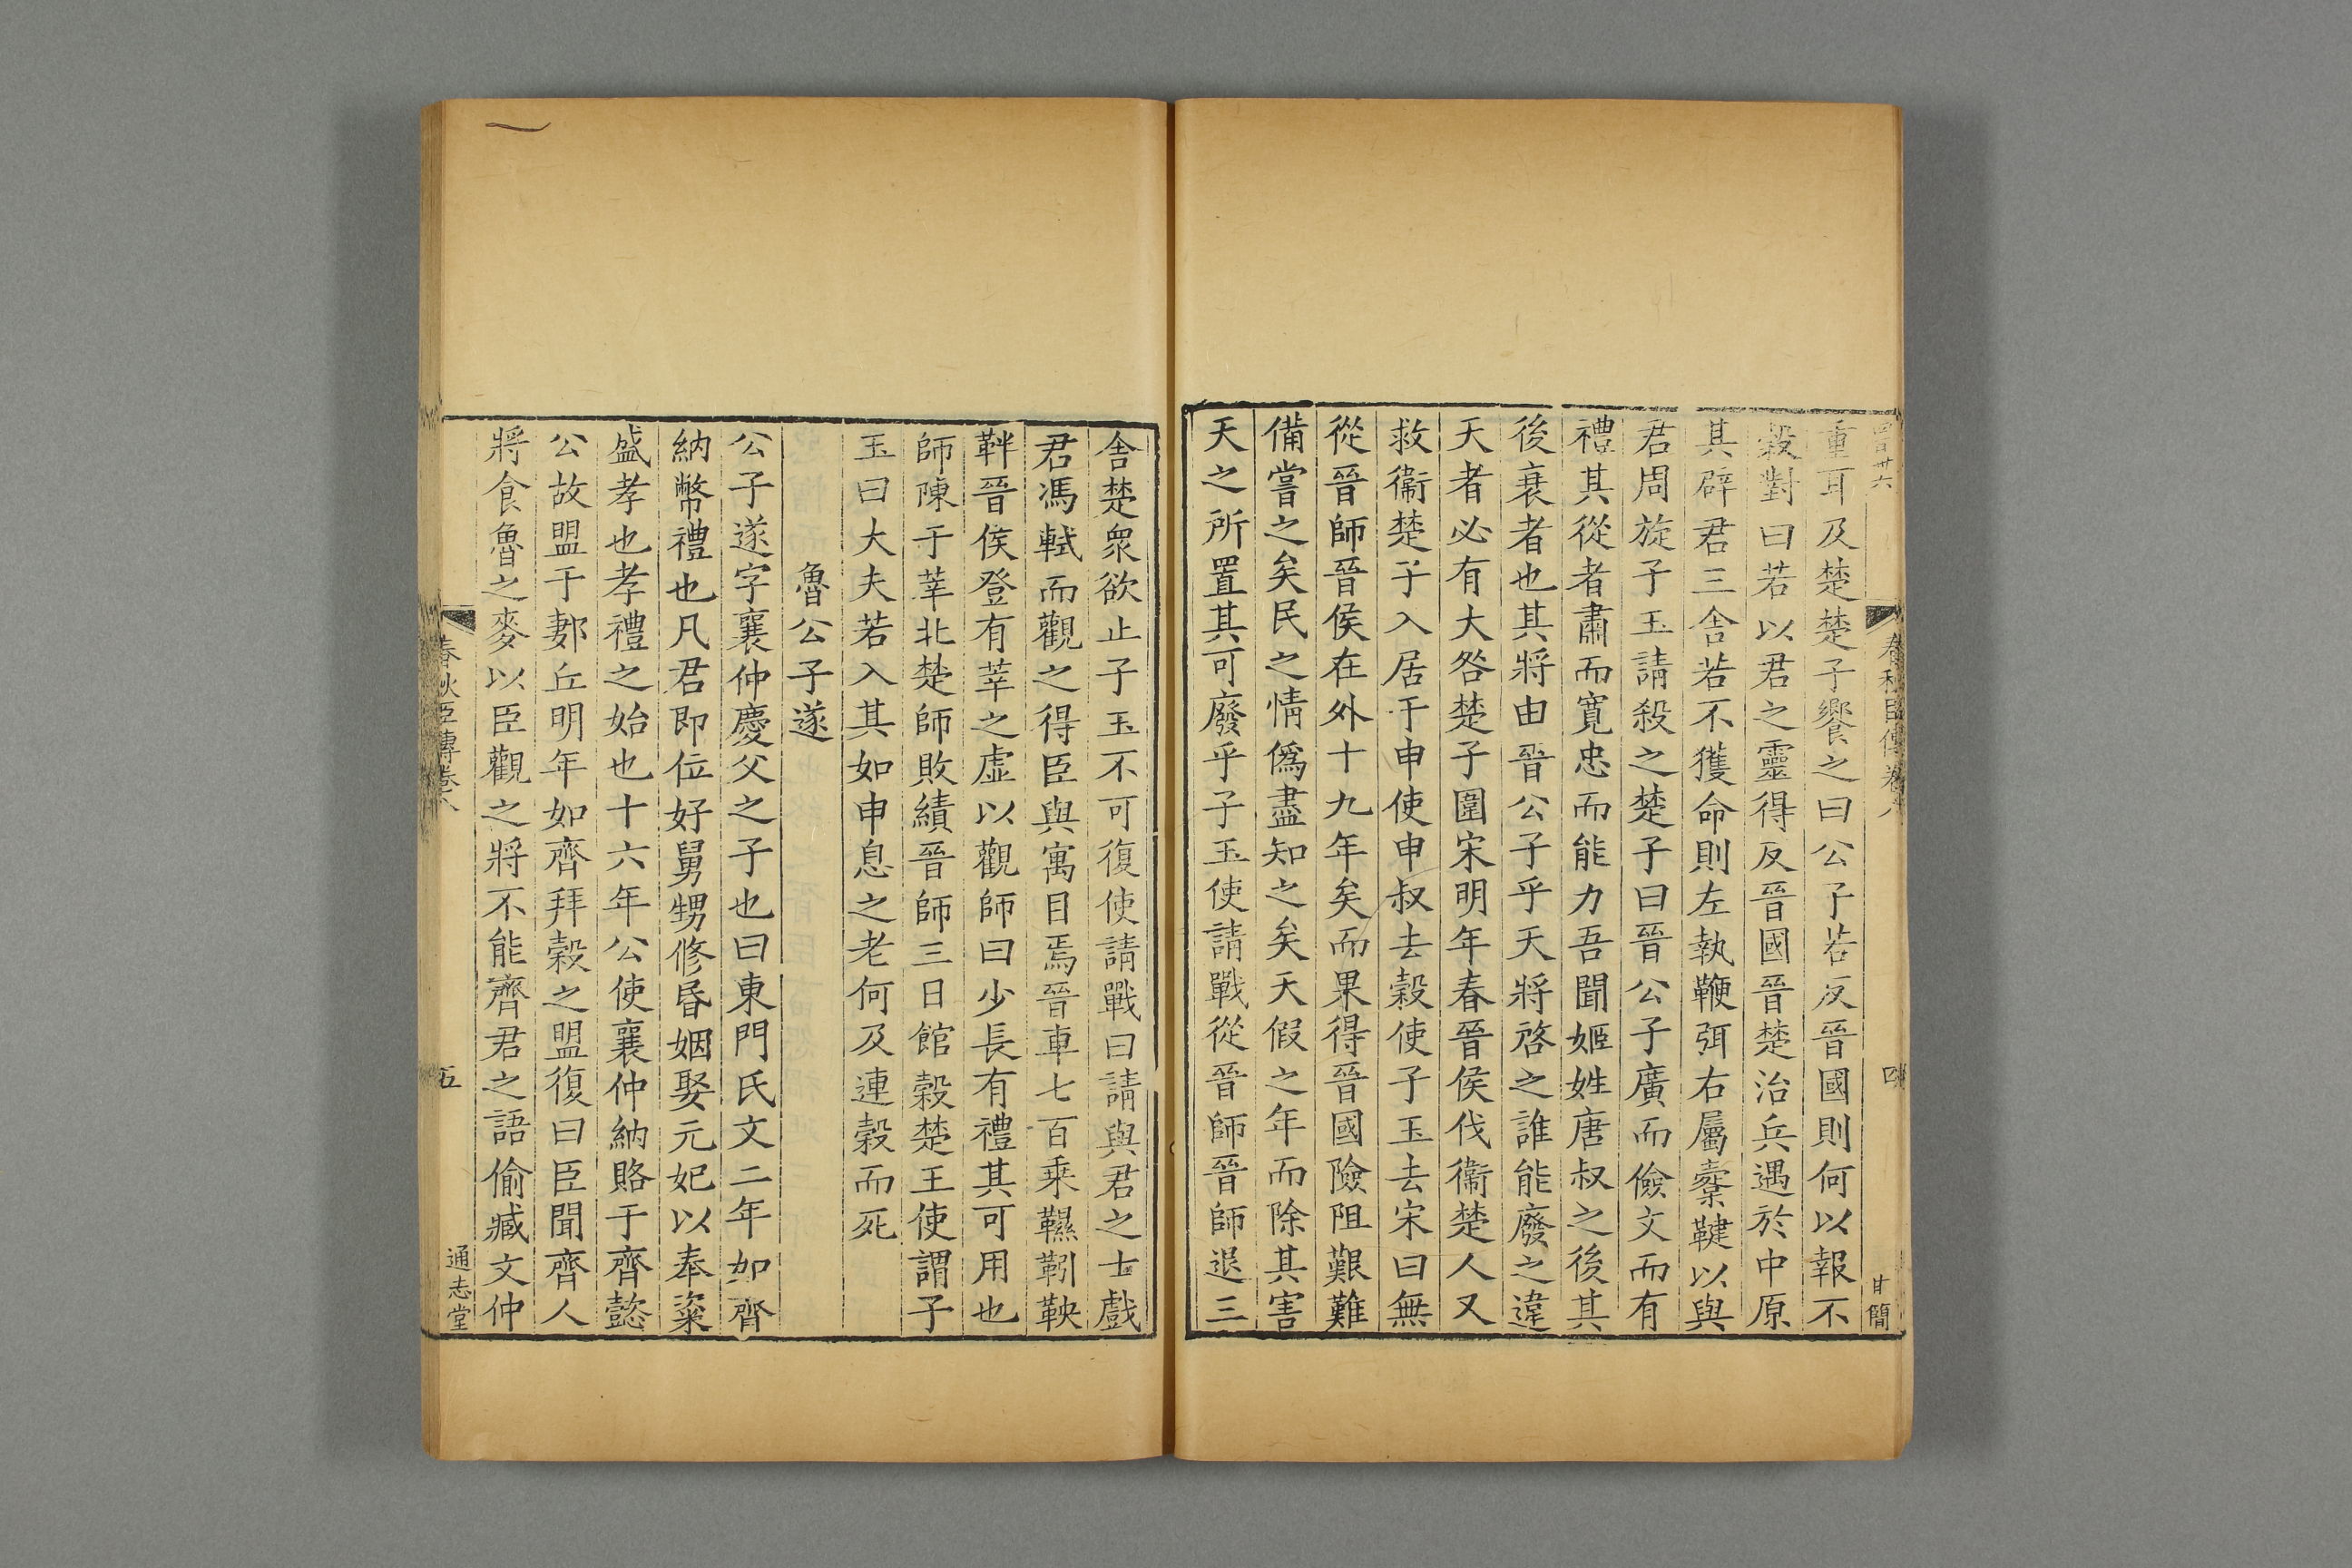 四百卅六
春秋臣傳卷八
四
甘簡
重耳及楚楚子饗之曰公子若反晉國則何以報不
穀對曰若以君之靈得反晉國晉楚治兵遇於中原
其辟君三舍若不獲命則左執鞭弭右屬櫜鞬以與
君周旋子玉請殺之楚子曰晉公子廣而儉文而有
禮其從者肅而寬忠而能力吾聞姬姓唐叔之後其
後衰者也其將由晉公子乎天將啓之誰能廢之違
天者必有大咎楚子圍宋明年春晉侯伐衞楚人又
救衞楚子入居于申使申叔去穀使子玉去宋曰無
從晉師晉侯在外十九年矣而果得晉國險阻艱難
備嘗之矣民之情僞盡知之矣天假之年而除其害
天之所置其可廢乎子玉使請戰從晉師晉師退三
舍楚衆欲止子玉不可復使請戰曰請與君之士戲
君馮軾而觀之得臣與寓目焉晉車七百乘韅靷鞅
靽晉侯登有莘之虛以觀師曰少長有禮其可用也
師陳于莘北楚師敗績晉師三日館穀楚王使謂子
玉曰大夫若入其如申息之老何及連穀而死
魯公子遂
公子遂字襄仲慶父之子也曰東門氏文二年如齊
納幣禮也凡君即位好舅甥修昏姻娶元妃以奉粢
盛孝也孝禮之始也十六年公使襄仲納賂于齊懿
公故盟于郪丘明年如齊拜穀之盟復曰臣聞齊人
將食魯之麥以臣觀之將不能齊君之語偷臧文仲
春秋臣傳卷八
五
通志堂